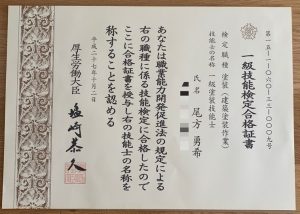 一級技能検定合格証書
第一五-一-〇六〇-三三-〇〇〇九号
検定職種 塗装(建築塗装作業)
技能士の名称 一級塗装技能士
氏名 尾方勇希
あなたは職業能力開発促進法の規定による
右の職種に係る技能検定に合格したので
ここに合格証書を授与し右の技能士の名称を
称することを認める
平成二十七年十月二日
厚生労働大臣 塩崎恭久